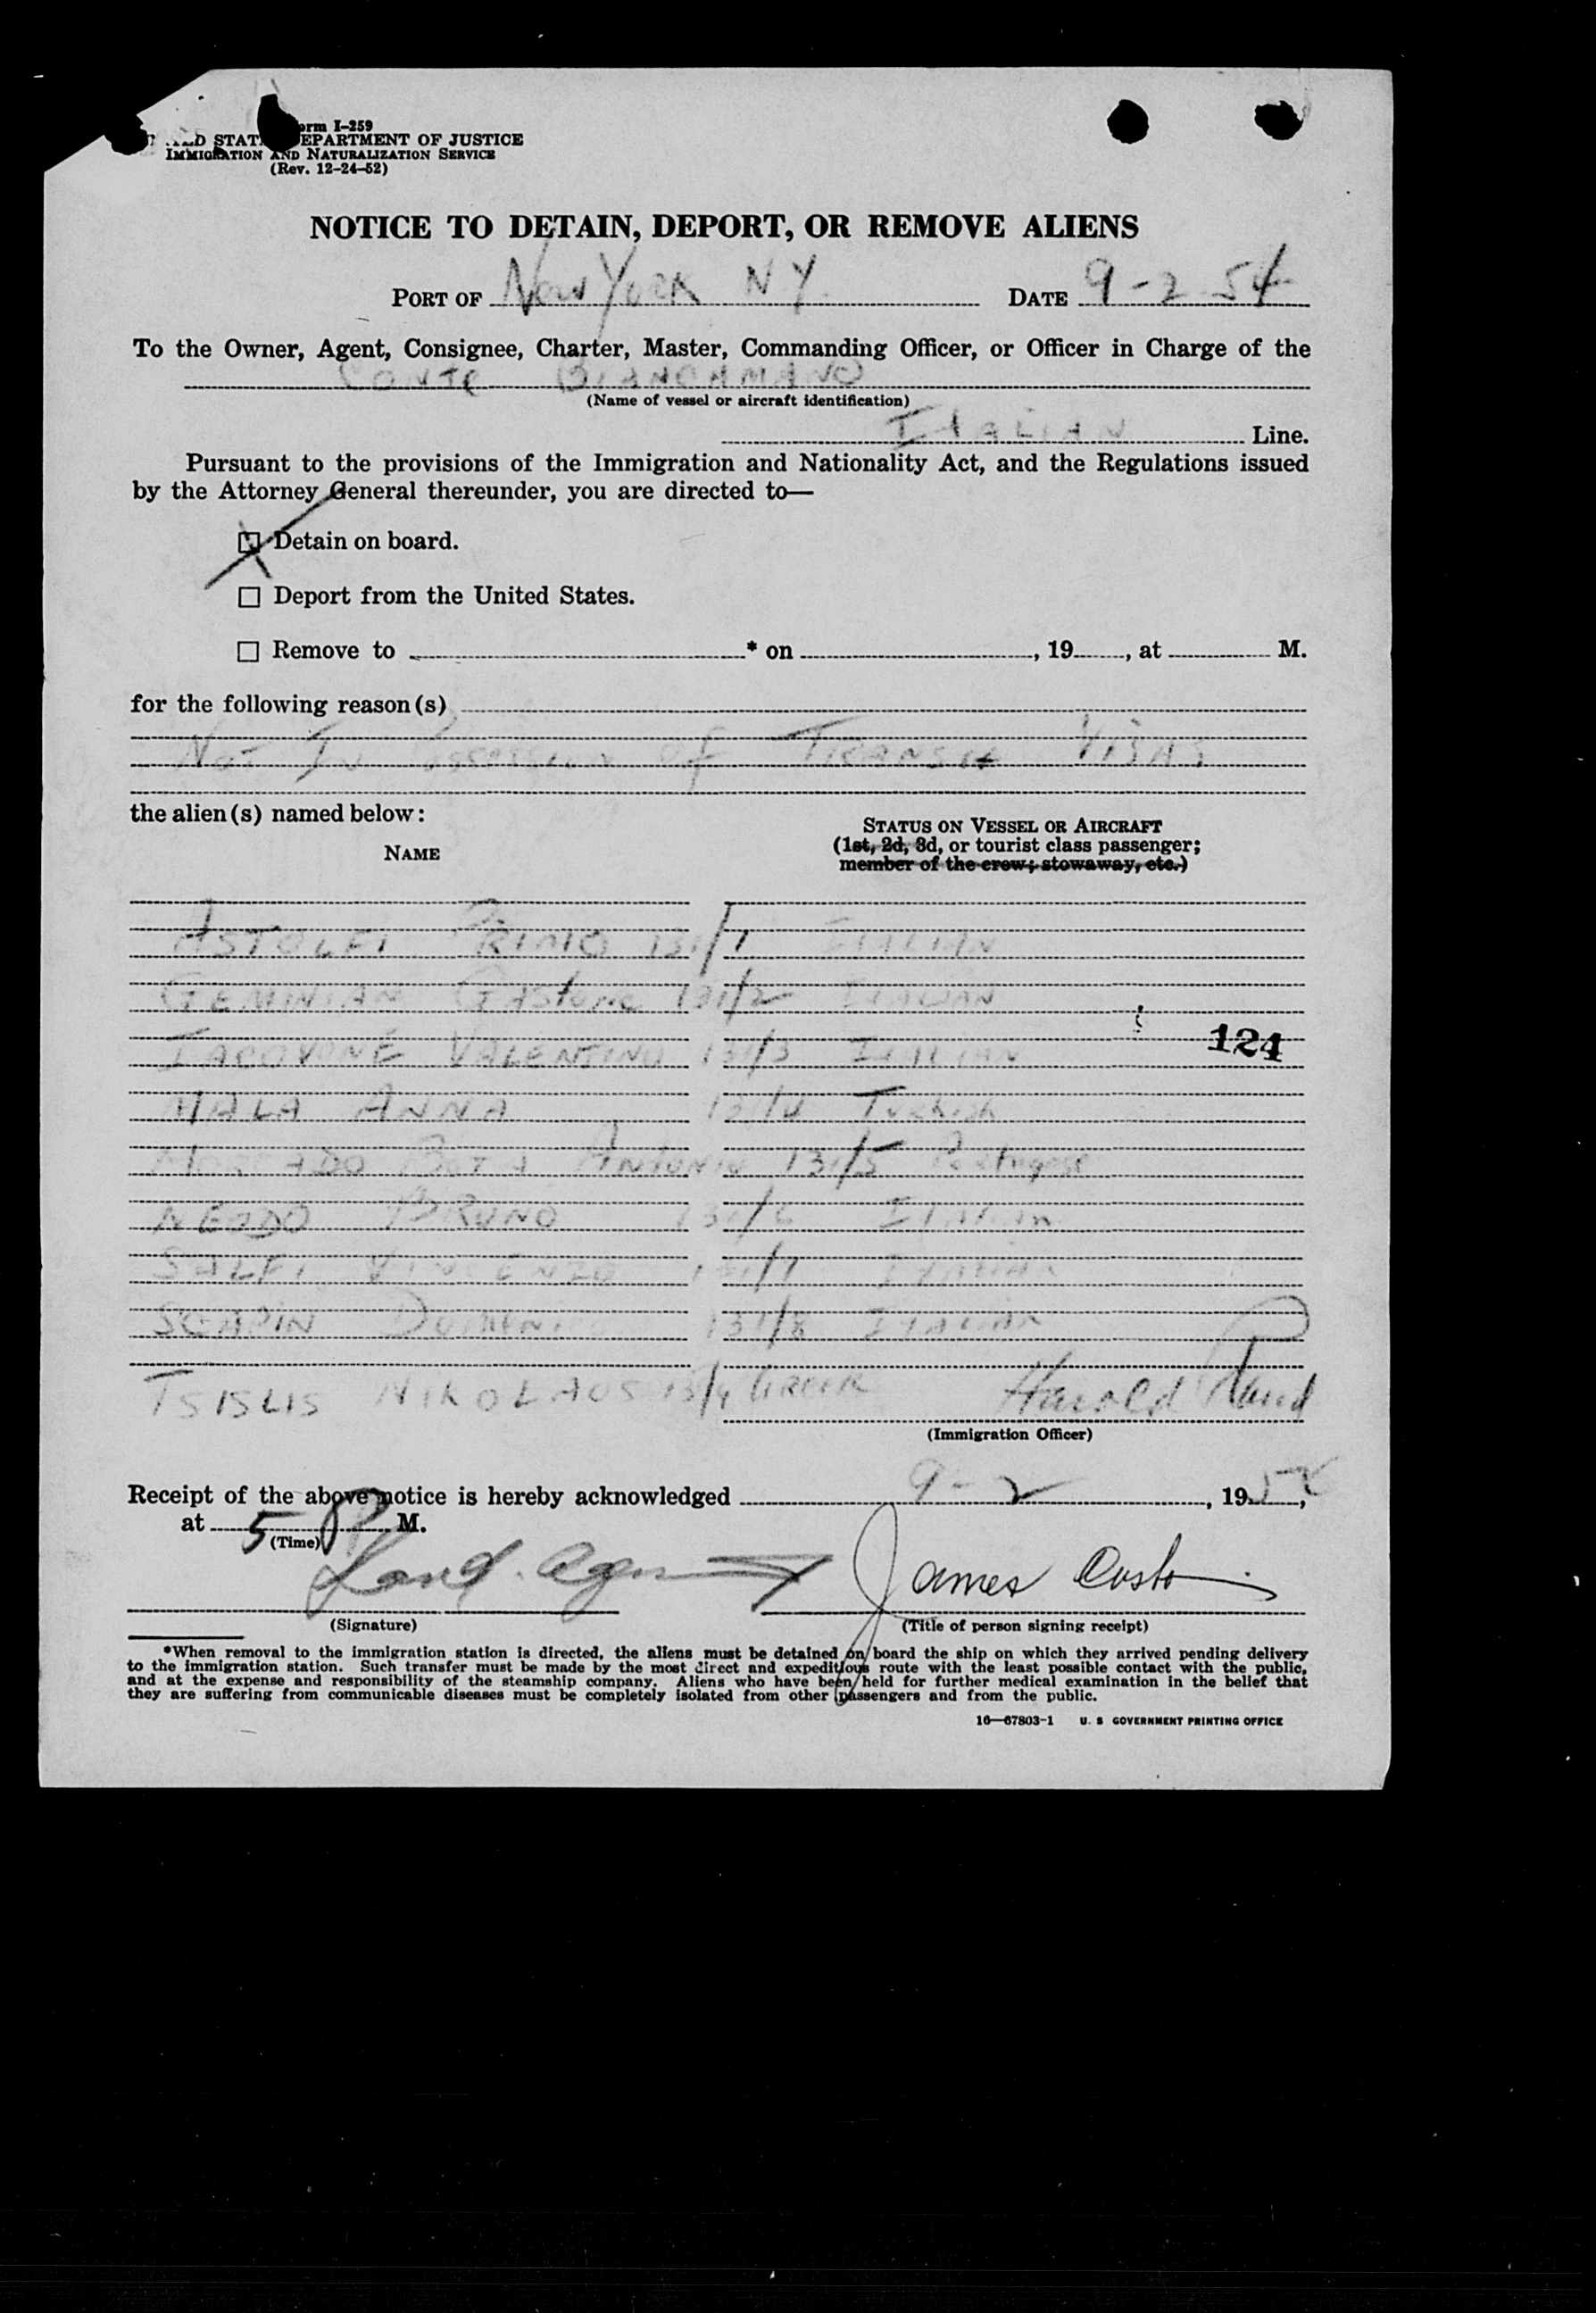 orm I-259
STAT EPARTMENT OF JUSTICE
IMMIGRATION AND NATURALIZATION SERVICE
(Rev. 12-24-52)
NOTICE TO DETAIN, DEPORT, OR REMOVE ALIENS
PORT OF New York NY. DATE 9-2-54
To the Owner, Agent, Consignee, Charter, Master, Commanding Officer, or Officer in Charge of the
Conte BIANCAMANO
(Name of vessel or aircraft identification)
ITALIAN Line.
Pursuant to the provisions of the Immigration and Nationality Act, and the Regulations issued
by the Attorney General thereunder, you are directed to—
☒ Detain on board.
☐ Deport from the United States.
☐ Remove to * on , 19 , at M.
for the following reason(s)
Not In Possession of Transit Visas
the alien(s) named below:
STATUS ON VESSEL OR AIRCRAFT
(1st, 2d, 3d, or tourist class passenger;
NAME
member of the crew; stowaway, etc.)
ASTOLFI PRIMO 131/1 ITALIAN
GEMINIAN GASTONE 131/2 ITALIAN
IACOVONE VALENTINO 131/3 ITALIAN
124
MALA ANNA 131/4 Turkish
ANTONIO 131/5 Portugese
BRUNO 131/6 Italian
SALFI VINCENZO 131/7 ITALIAN
SCAPIN DOMENICO 131/8 ITALIAN
TSISLIS NIKOLAOS 131/9 GREEK Harold Rand
(Immigration Officer)
Receipt of the above notice is hereby acknowledged 9-2, 1954,
at 5 P M.
(Time)
James
(Signature)
(Title of person signing receipt)
*When removal to the immigration station is directed, the aliens must be detained on board the ship on which they arrived pending delivery
to the immigration station. Such transfer must be made by the most direct and expeditious route with the least possible contact with the public,
and at the expense and responsibility of the steamship company. Aliens who have been held for further medical examination in the belief that
they are suffering from communicable diseases must be completely isolated from other passengers and from the public.
16—67803-1 U. S GOVERNMENT PRINTING OFFICE